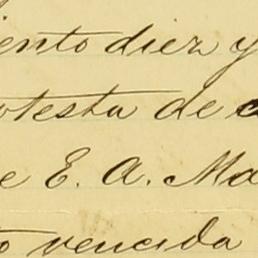 iento diez y
otesta de
e E. A. Ma
o vencida